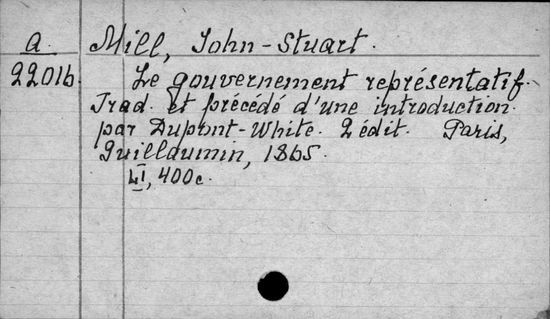 a Mill, John-Stuart.
22016. Le gouvernement représentatif.
Trad. et précédé d'une introduction
par Dupont-White. 2 édit. Paris,
Guillaumin, 1865.
LI, 400c.